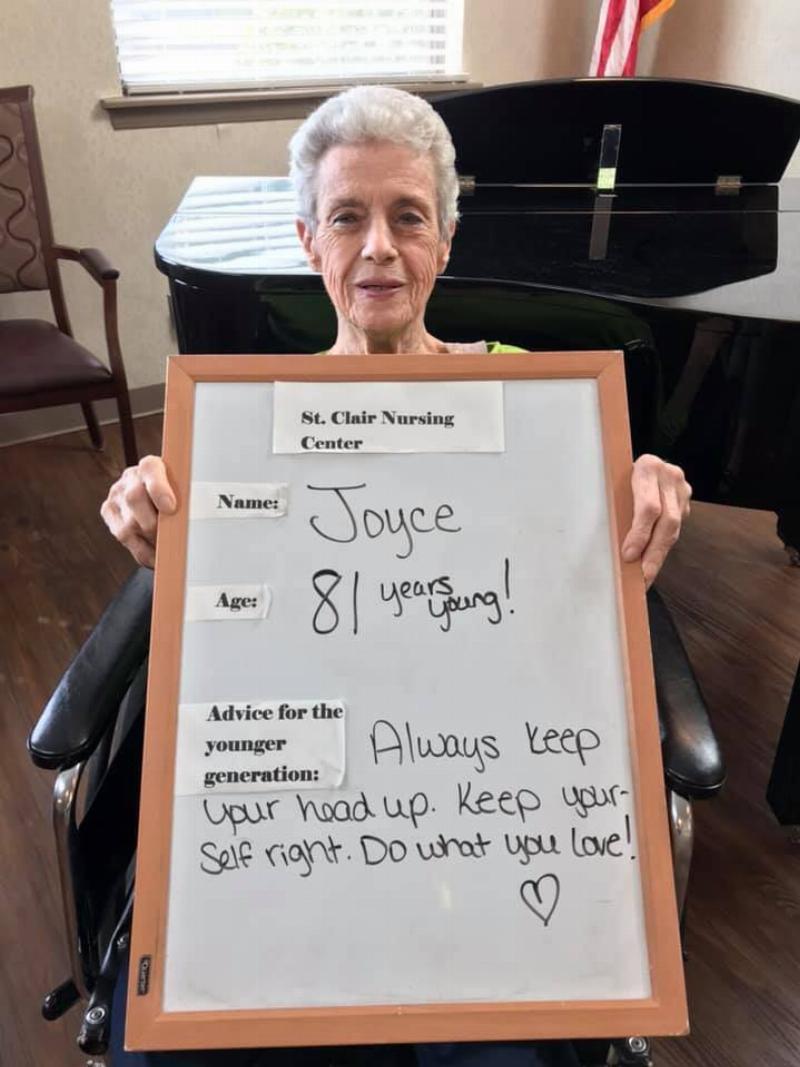 St. Clair Nursing
Center
Name: Joyce
Age: 81 years young!
Advice for the
younger
generation: Always keep
your head up. Keep your-
self right. Do what you love!
Quartet